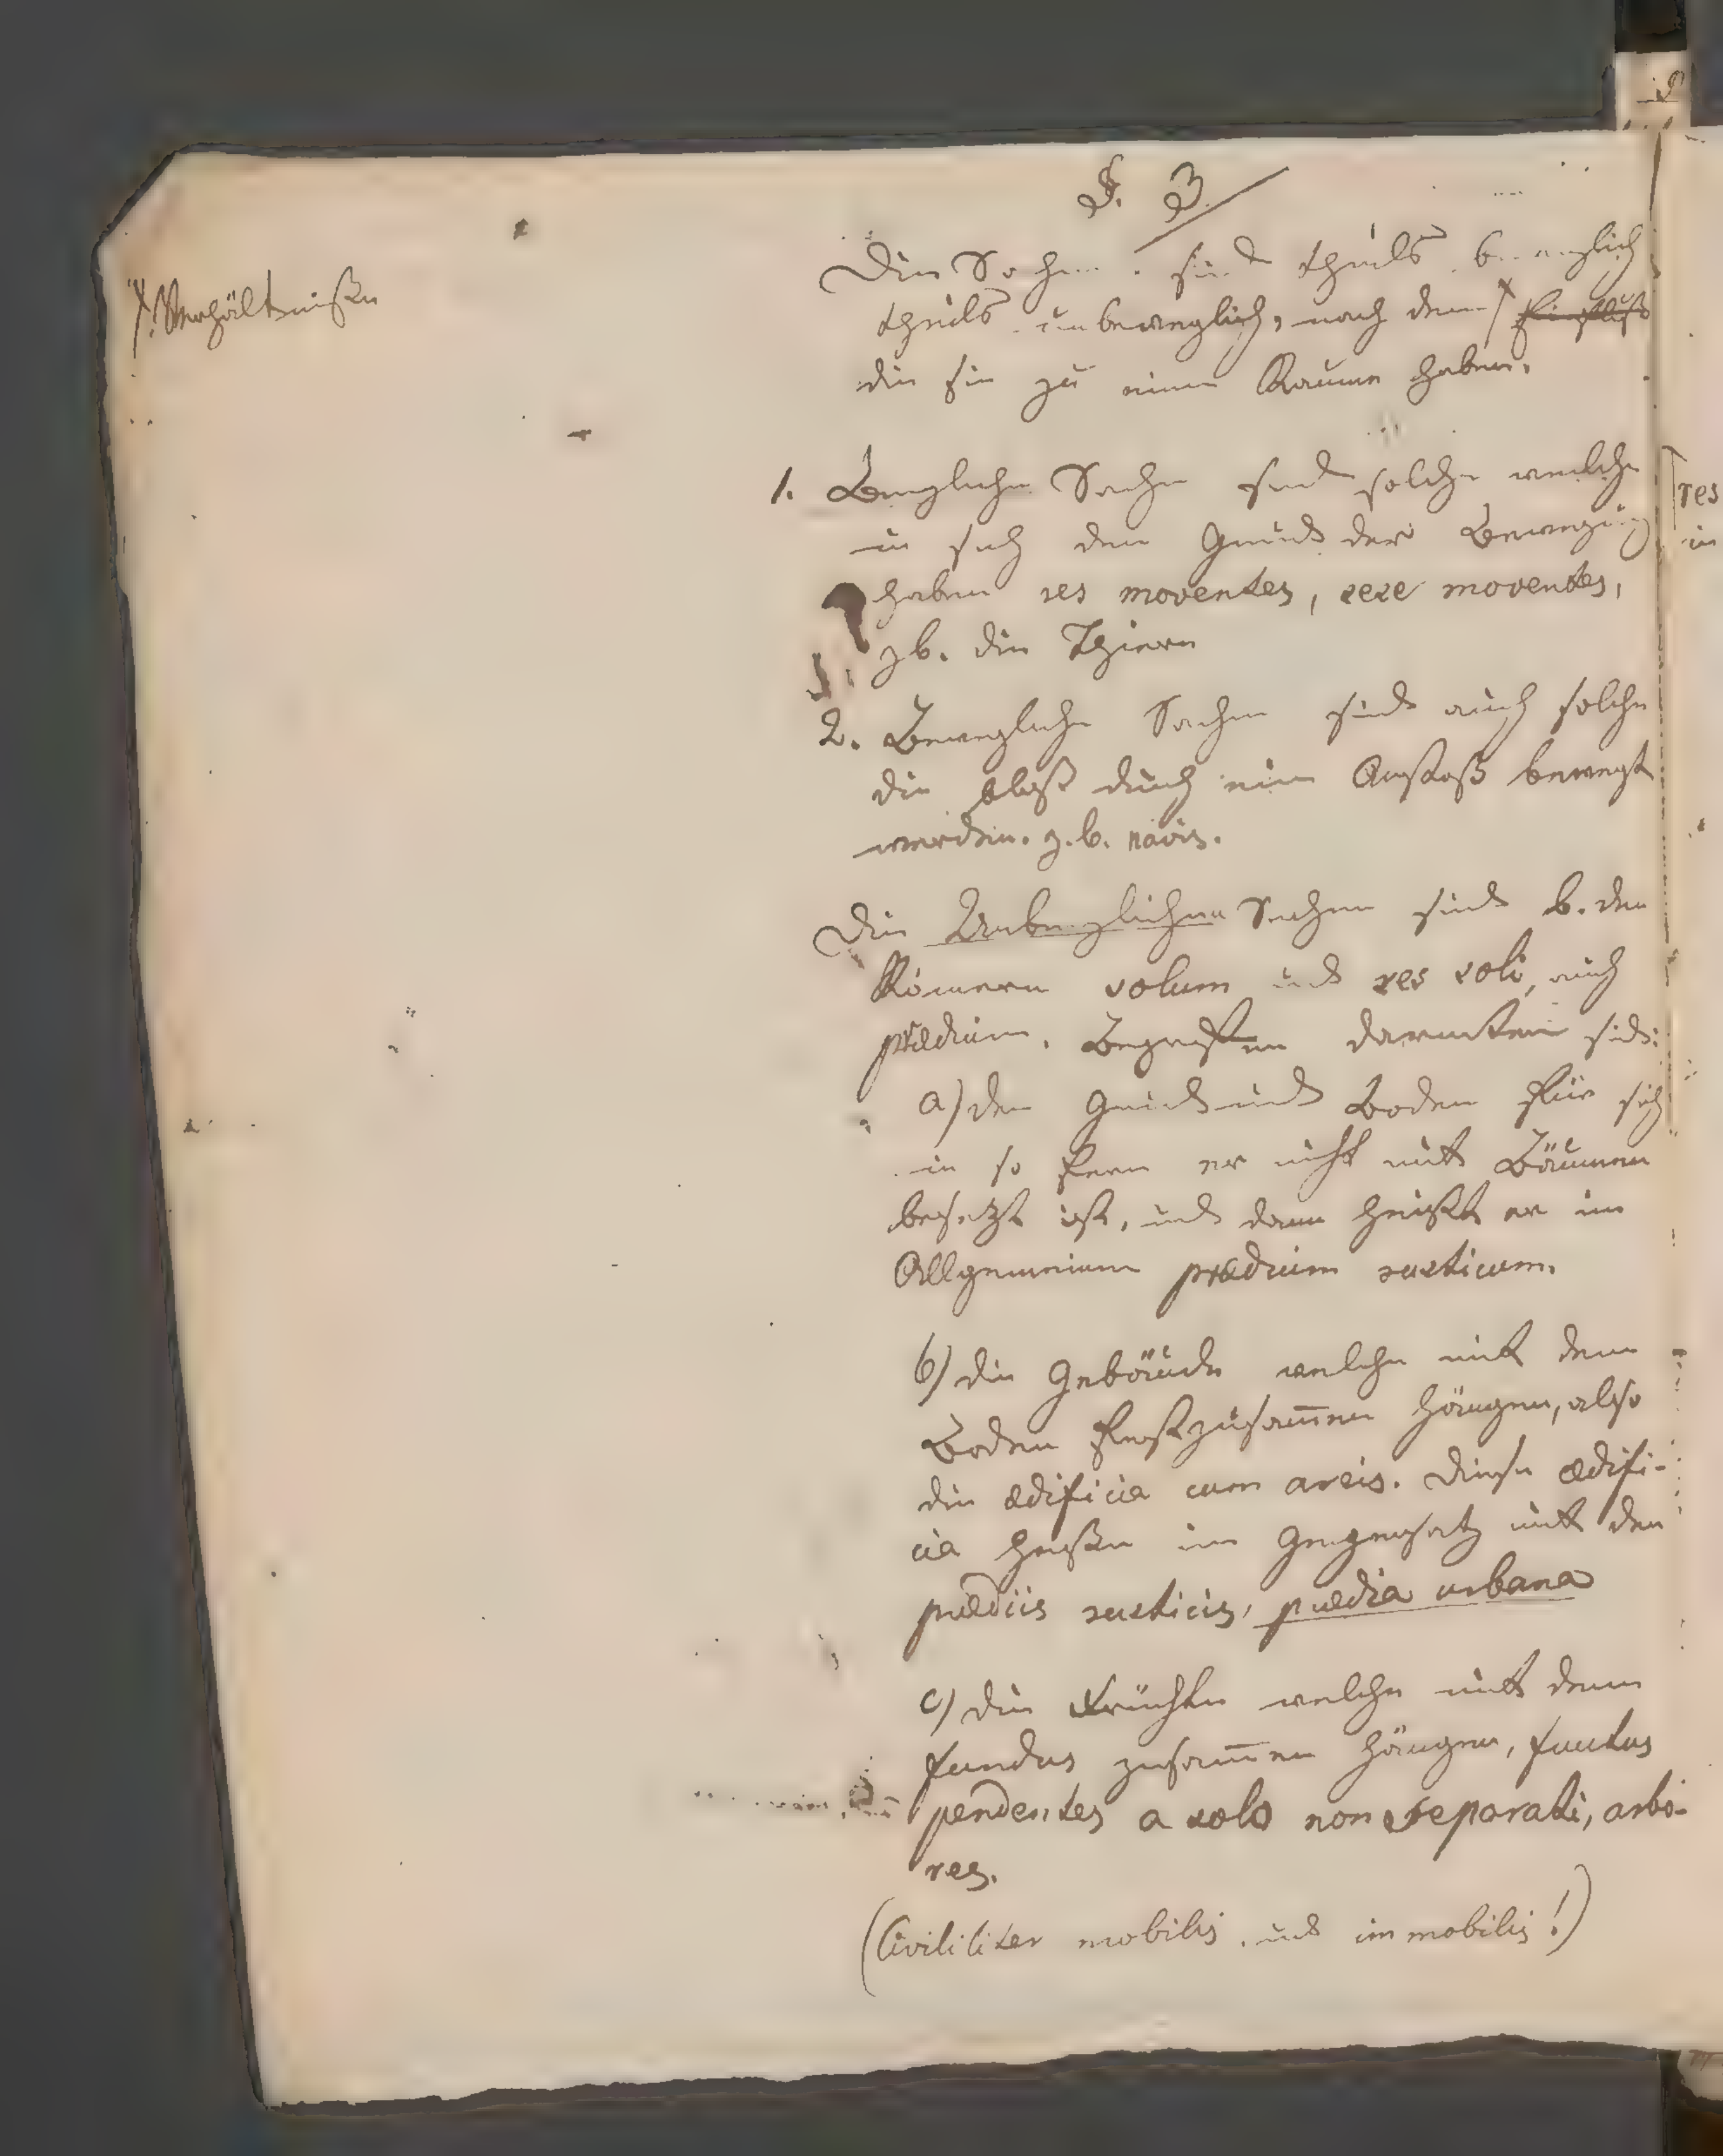 §. 3
Die Sachen sind theils beweglich
theils unbeweglich, nach dem ⌿ Einfluß
⌿ Verhältniße
die sie zu einem Raume haben.
1. Bewegliche Sachen sind solche welche
in sich den Grund der Bewegung
haben res moventes, sese moventes,
z b. die Thiere
2. Bewegliche Sachen sind auch solche
die bloß durch einen Anstoß bewegt
werden. z. b. navis.
Die Unbeweglichen Sachen sind b. den
Römern solum und res soli, auch
prædium. Begriffen darunter sind:
a) der Grund und Boden für sich
in so fern er nicht mit Bäumen
besetzt ist, und dann heißt er im
Allgemeinen prædium rusticum.
b) die Gebäude welche mit dem
Boden fest zusam̅en hängen, also
die ædificia cum areis. Diese ædifi-
cia heißen im Gegensatz mit den
prædiis rusticis, prædia urbana
c) die Früchte welche mit dem
fundus zusam̅en hängen, fructus
pendentes a solo non separati, arbo-
res.
(Civiliter mobilis und immobilis!)
res
in